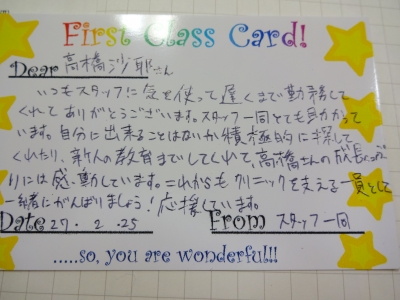 First Class Card!
Dear 高橋沙耶さん
いつもスタッフに気を使って遅くまで勤務して
くれてありがとうございます。スタッフ一同とても助かって
います。自分に出来ることはないか積極的に探して
くれたり、新人の教育までしてくれて、高橋さんの成長っぷ
りには感動しています。これからもクリニックを支える一員として
一緒にがんばりましょう!応援しています。
Date 27. 2. 25 From スタッフ一同
.....so, you are wonderful!!